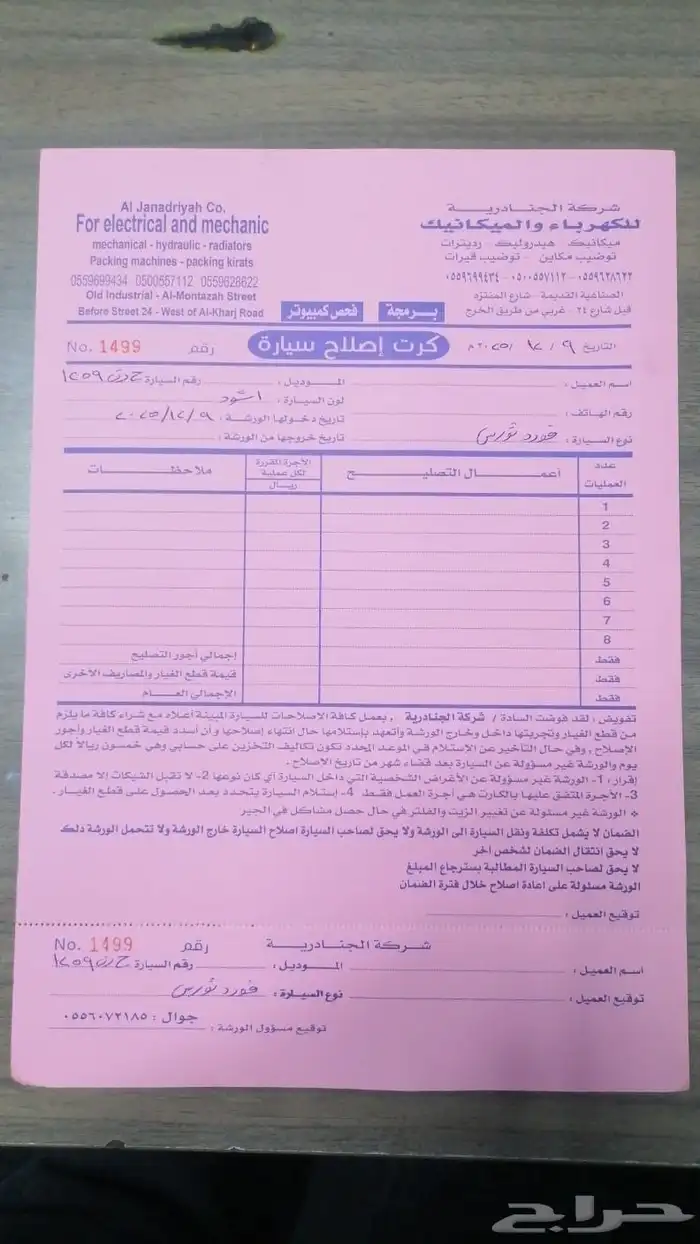 Al Janadriyah Co.
For electrical and mechanic
mechanical - hydraulic - radiators
Packing machines - packing kirats
0559699434 0500557112 0559628622
Old Industrial - Al-Montazah Street
Before Street 24 - West of Al-Kharj Road
شركة الجنادرية
للكهرباء والميكانيك
ميكانيك - هيدروليك - رديترات
توضيب مكاين - توضيب قيرات
٠٥٥٩٦٢٨٦٢٢ - ٠٥٠٠٥٥٧١١٢ - ٠٥٥٩٦٩٩٤٣٤
الصناعية القديمة - شارع المنتزه
قبل شارع ٢٤ - غربي من طريق الخرج
برمجة فحص كمبيوتر
التاريخ ٩ / ١٢ / ٢٠٢٥م
كرت إصلاح سيارة
رقم No. 1499
اسم العميل : الموديل : رقم السيارة : ١٢٥٩
لون السيارة : اسود
رقم الهاتف : تاريخ دخولها الورشة : ٢٠٢٥/١٢/٩
نوع السيارة : فورد تورس تاريخ خروجها من الورشة :
عدد العمليات أعمال التصليح الأجرة المقررة لكل عملية ريال ملاحظات
1
2
3
4
5
6
7
8
فقط إجمالي أجور التصليح
فقط قيمة قطع الغيار والمصاريف الأخرى
فقط الإجمالي العام
تفويض : لقد فوضت السادة / شركة الجنادرية ، بعمل كافة الاصلاحات للسيارة المبينة أعلاه مع شراء كافة ما يلزم
من قطع الغيار وتجربتها داخل وخارج الورشة وأتعهد بإستلامها حال انتهاء إصلاحها و أن أسدد قيمة قطع الغيار وأجور
الإصلاح ، وفي حال التأخير عن الإستلام في الموعد المحدد تكون تكاليف التخزين على حسابي وهي خمسون ريالا لكل
يوم والورشة غير مسؤولة عن السيارة بعد قضاء شهر من تاريخ الاصلاح.
إقرار : 1- الورشة غير مسؤولة عن الأغراض الشخصية التي داخل السيارة أي كان نوعها 2- لا تقبل الشيكات إلا مصدقة
3- الأجرة المتفق عليها بالكارت هي أجرة العمل فقط 4- إستلام السيارة يتحدد بعد الحصول على قطع الغيار .
* الورشة غير مسئولة عن تغيير الزيت والفلتر في حال حصل مشاكل في الجير
الضمان لا يشمل تكلفة ونقل السيارة الى الورشة ولا يحق لصاحب السيارة اصلاح السيارة خارج الورشة ولا تتحمل الورشة ذلك
لا يحق انتقال الضمان لشخص اخر
لا يحق لصاحب السيارة المطالبة بسترجاع المبلغ
الورشة مسئولة على اعادة اصلاح خلال فترة الضمان
توقيع العميل :
شركة الجنادرية رقم No. 1499
اسم العميل : الموديل : رقم السيارة : ١٢٥٩
توقيع العميل : نوع السيارة : فورد تورس
توقيع مسؤول الورشة : جوال : ٠٥٥٦٠٧٢١٨٥
حراج